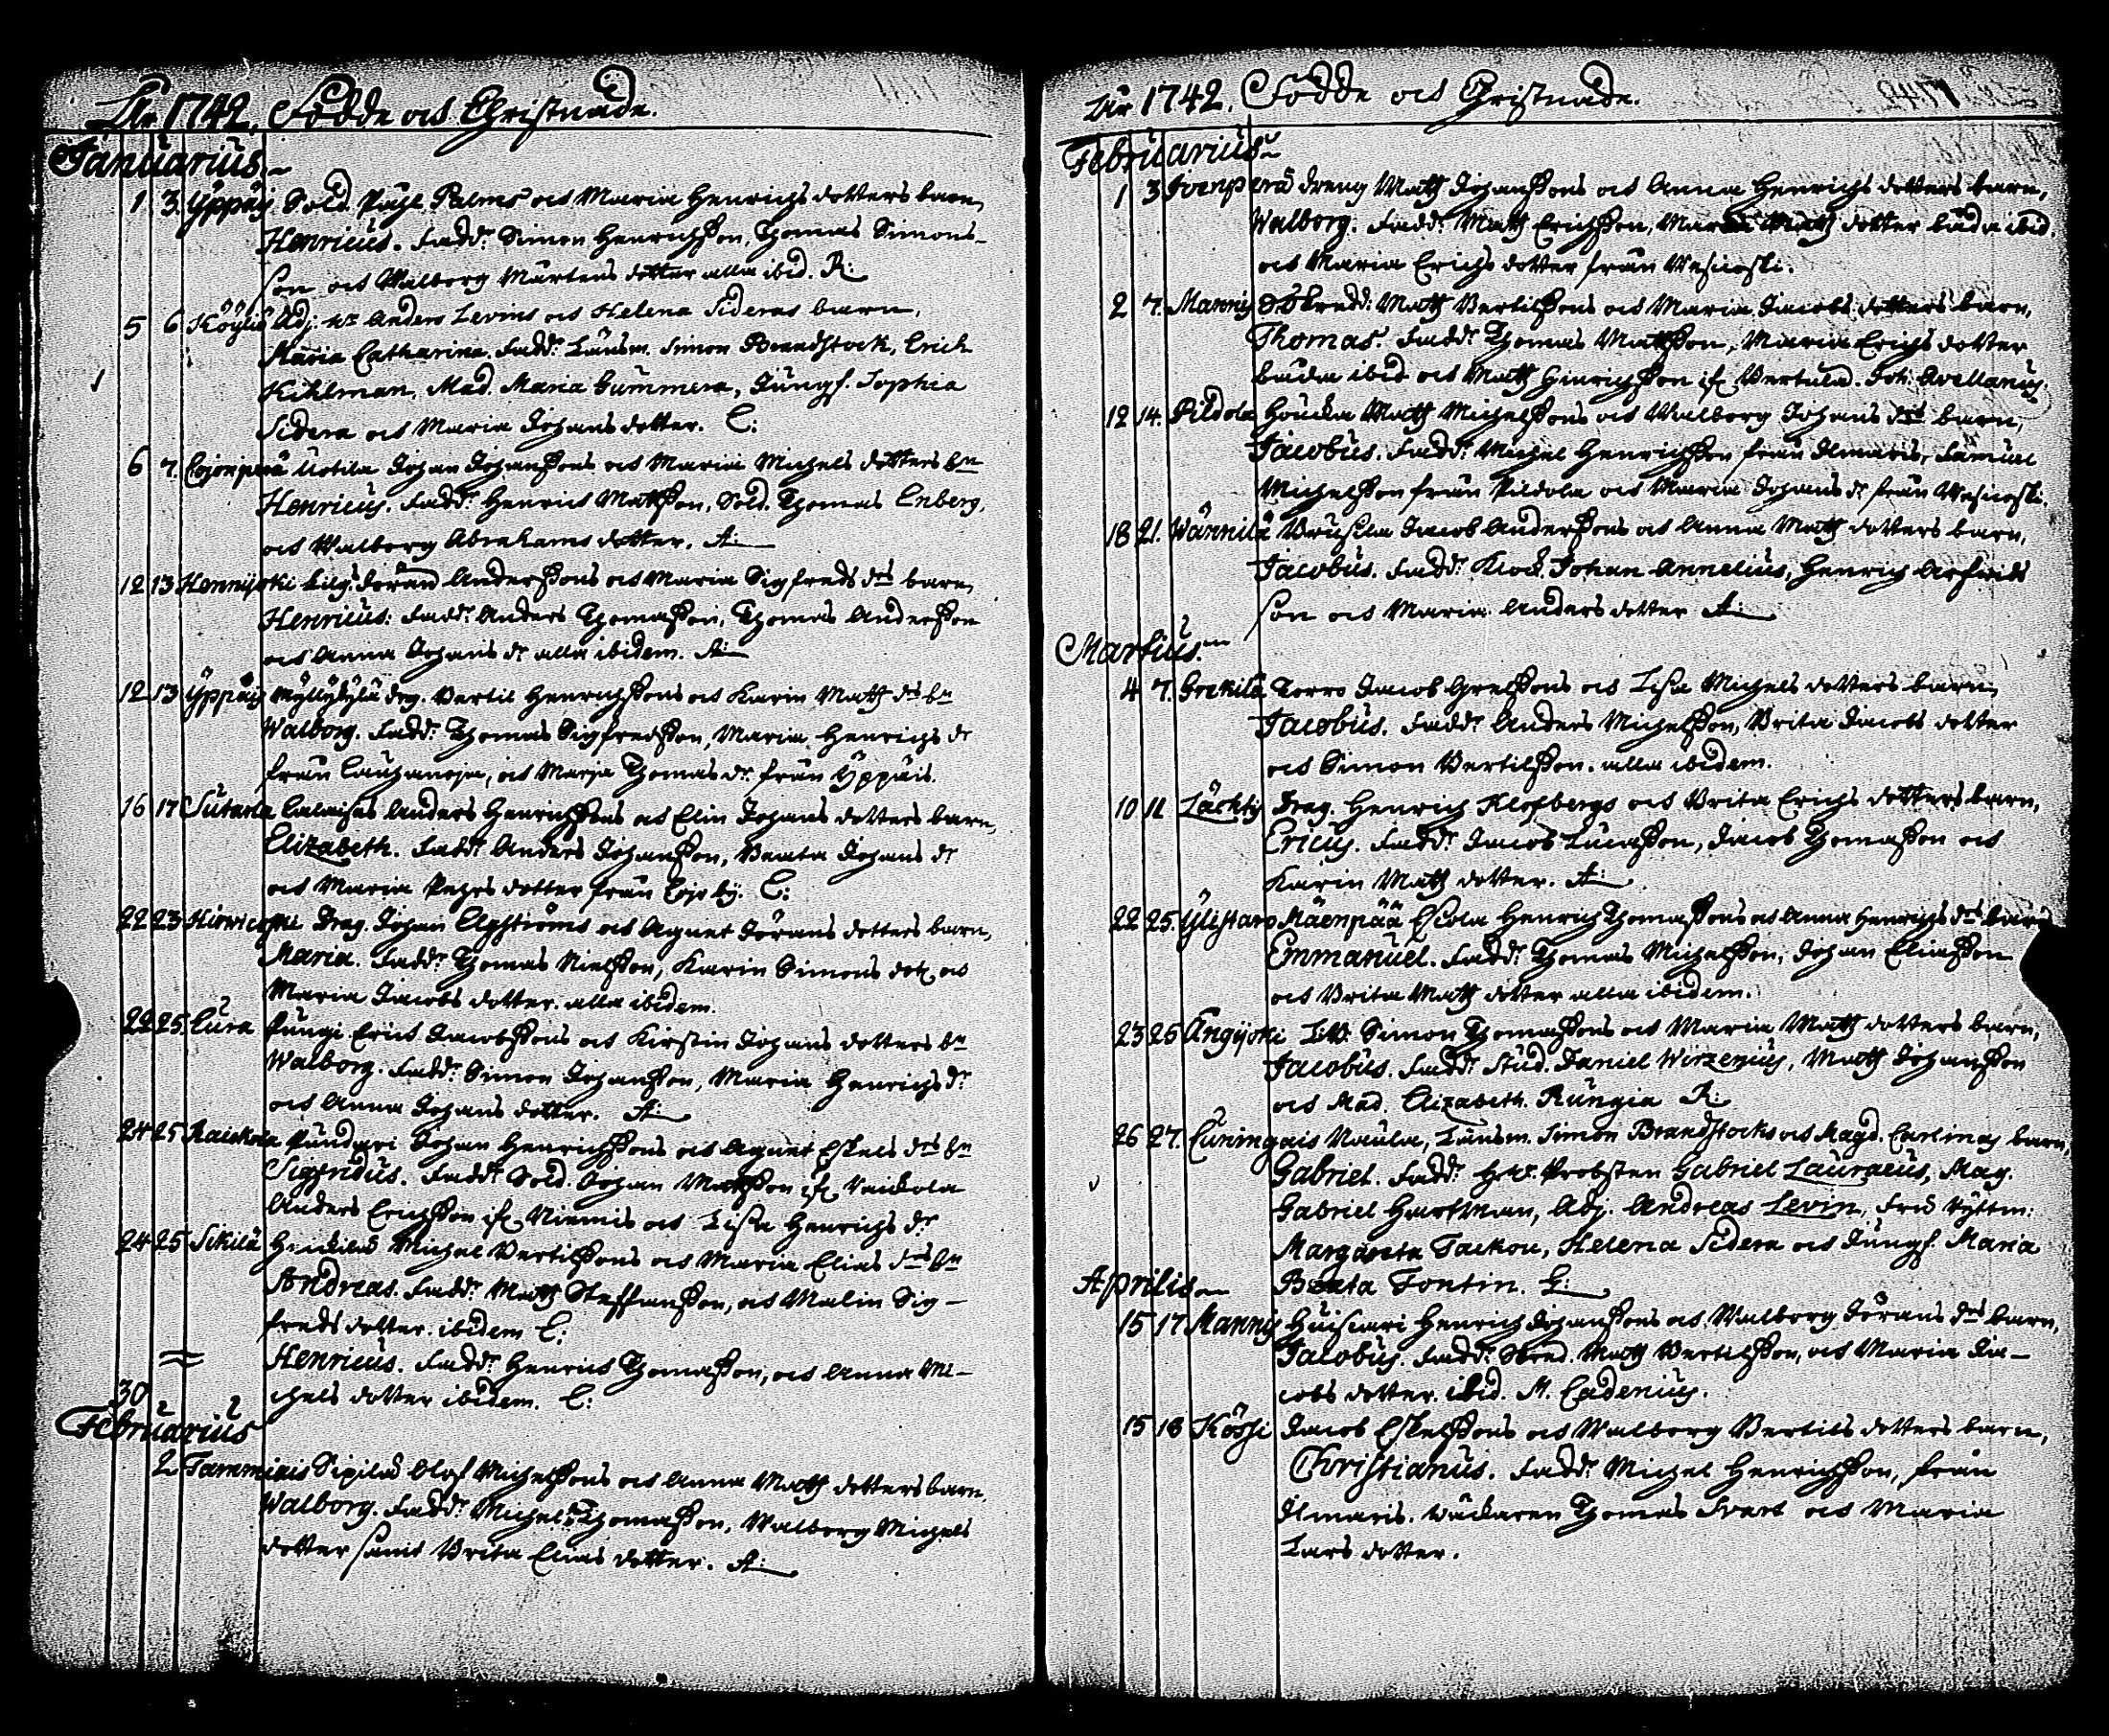 År 1742. Födde och Christnade.
Januarius
1 3. Yppäis Sold. Påhl Palms och Maria Henrichs dotters barn,
Henricus. Fadd:r Simon Henrichsson, Thomas Simons-
son och Walborg Mårtens dotter alla ibid. R:
5 6 Köyliö Adj. Hr Anders Levins och Helena Sideras barn,
Maria Catharina. Fadd:r Länsm. Simon Brandstock, Erich
Kihlman, Mad. Maria Gummera, Jungf. Sophia
Sidera och Maria Johans dotter. C:
6 7. Cojonperä Uotila Johan Johanssons och Maria Michels dotters b:n
Henricus. Fadd:r Henrich Mattsson, Sold. Thomas Enberg,
och Walborg Abrahams dotter. A:
12 13 Hennijoki Göran Anderssons och Maria Sigfreds d:rs barn,
Henricus: Fadd:r Anders Thomasson, Thomas Andersson
och Anna Johans d:r alla ibidem. A:
12 13 Yppäis Myllykylä drg. Bertil Henrichssons och Karin Matts d:rs b:n
Walborg. Fadd:r Thomas Sigfredsson, Maria Henrichs d:r
från Cauhanoja, och Marja Thomas d:r från Yppäis.
16 17 Sutarla Calaisas Anders Henrichssons och Elin Johans dotters barn,
Elizabeth. Fadd:r Anders Johansson, Beata Johans d:r
och Maria Pehrs dotter från Cojo by. C:
22 23 Hirwicoski Drag. Johan Elgströms och Agnet Görans dotters barn,
Maria. Fadd:r Thomas Nielsson, Karin Simons dot. och
Maria Jacobs dotter. alla ibidem.
22 25. Cura Pungi Erich Jacobssons och Kirstin Johans dotters b:n
Walborg. Fadd:r Simon Johansson, Maria Henrichs d:r
och Anna Johans dotter. A:
24 25 Raiskola Pundari Johan Henrichssons och Agnet Eskels d:rs b:n
Sigfridus. Fadd:r Sold. Johan Mattsson if. Raickola
Anders Erichsson if. Niemis och Lisa Henrichs d:r
24 25 Sikilä Heickilas Michel Bertilssons och Maria Elias d:rs b:n
Andreas. Fadd:r Matts Steffansson, och Malin Sig-
freds dotter. ibidem C:
Henricus. Fadd:r Henrich Thomasson, och Anna Mi-
chels dotter ibidem. C:
30
Februarius
2 Tammiais Sipilas Olof Michelssons och Anna Matts dotters barn,
Walborg. Fadd:r Michel Thomasson, Walborg Michels
dotter samt Brita Elias dotter. A:
År 1742. Födde och Christnade.
Februarius
1 3 Iwenperä dreng Matts Johanssons och Anna Henrichs dotters barn,
Walborg. Fadd:r Matts Erichsson, Maria Matts dotter båda ibid.
och Maria Erichs dotter från Wesicoski.
2 7. Mannis Matts Bertilssons och Maria Jacobs dotters barn,
Thomas. Fadd:r Thomas Mattsson, Maria Erichs dotter
båda ibid och Matts Hinrichsson if. Vertula. Joh: Avellanus.
12 14. Pildola Houcka Matts Michelssons och Walborg Johans d:rs barn,
Jacobus. Fadd:r Michel Henrichsson från Ilmaris, Samuel
Michelsson från Pildola och Maria Johans d:r från Wesicoski.
18 21. Wännilä Urusila Jacob Anderssons och Anna Matts dotters barn,
Jacobus. Fadd:r Klock. Johan Annelius, Henrich Arfweds
son och Maria Anders dotter A:
Martius.
4 7. Sorkila Torro Jacob Grelssons och Lisa Michels dotters barn,
Jacobus. Fadd:r Anders Michelsson, Brita Jacobs dotter
och Simon Bertilsson. alla ibidem.
10 11 Lächtis Drag. Henrich Klofbergs och Brita Erichs dotters barn,
Ericus. Fadd:r Jacob Lucasson, Jacob Thomasson och
Karin Matts dotter. A:
22 25. Ylistaro Mäenpää Escola Henrich Thomassons och Anna Henrichs d:rs barn
Emmanuel. Fadd:r Thomas Michelsson, Johan Eliasson
och Brita Matts dotter alla ibidem.
23 25 Kangijoki Simon Thomassons och Maria Matts dotters barn,
Jacobus. Fadd:r Stud. Daniel Wirzenius, Matts Johansson
och Mad. Elizabeth. Rungia R:
26 27. Cuningais Naula, Länsm. Simon Brandstocks och Magd. Carlinas barn,
Gabriel. Fadd:r H:r Probsten Gabriel Lauraeus, Mag.
Gabriel Hartman, Adj. Andreas Levin, Fru Ryttm:
Margareta Tackou, Helena Sidera och Jungf. Maria
Beata Fontin. L:
Aprilis
15 17 Mannis Huiscari Henrich Johanssons och Walborg Görans d:rs barn,
Jacobus. Fadd:r Matts Bertilsson, och Maria Ja-
cobs dotter. ibid. M. Cadenius.
15 18 Kössi Jacob Eskelssons och Walborg Bertils dotters barn,
Christianus. Fadd:r Michel Henrichsson, från
Ilmaris. Wäckaren Thomas Svart och Maria
Lars dotter.